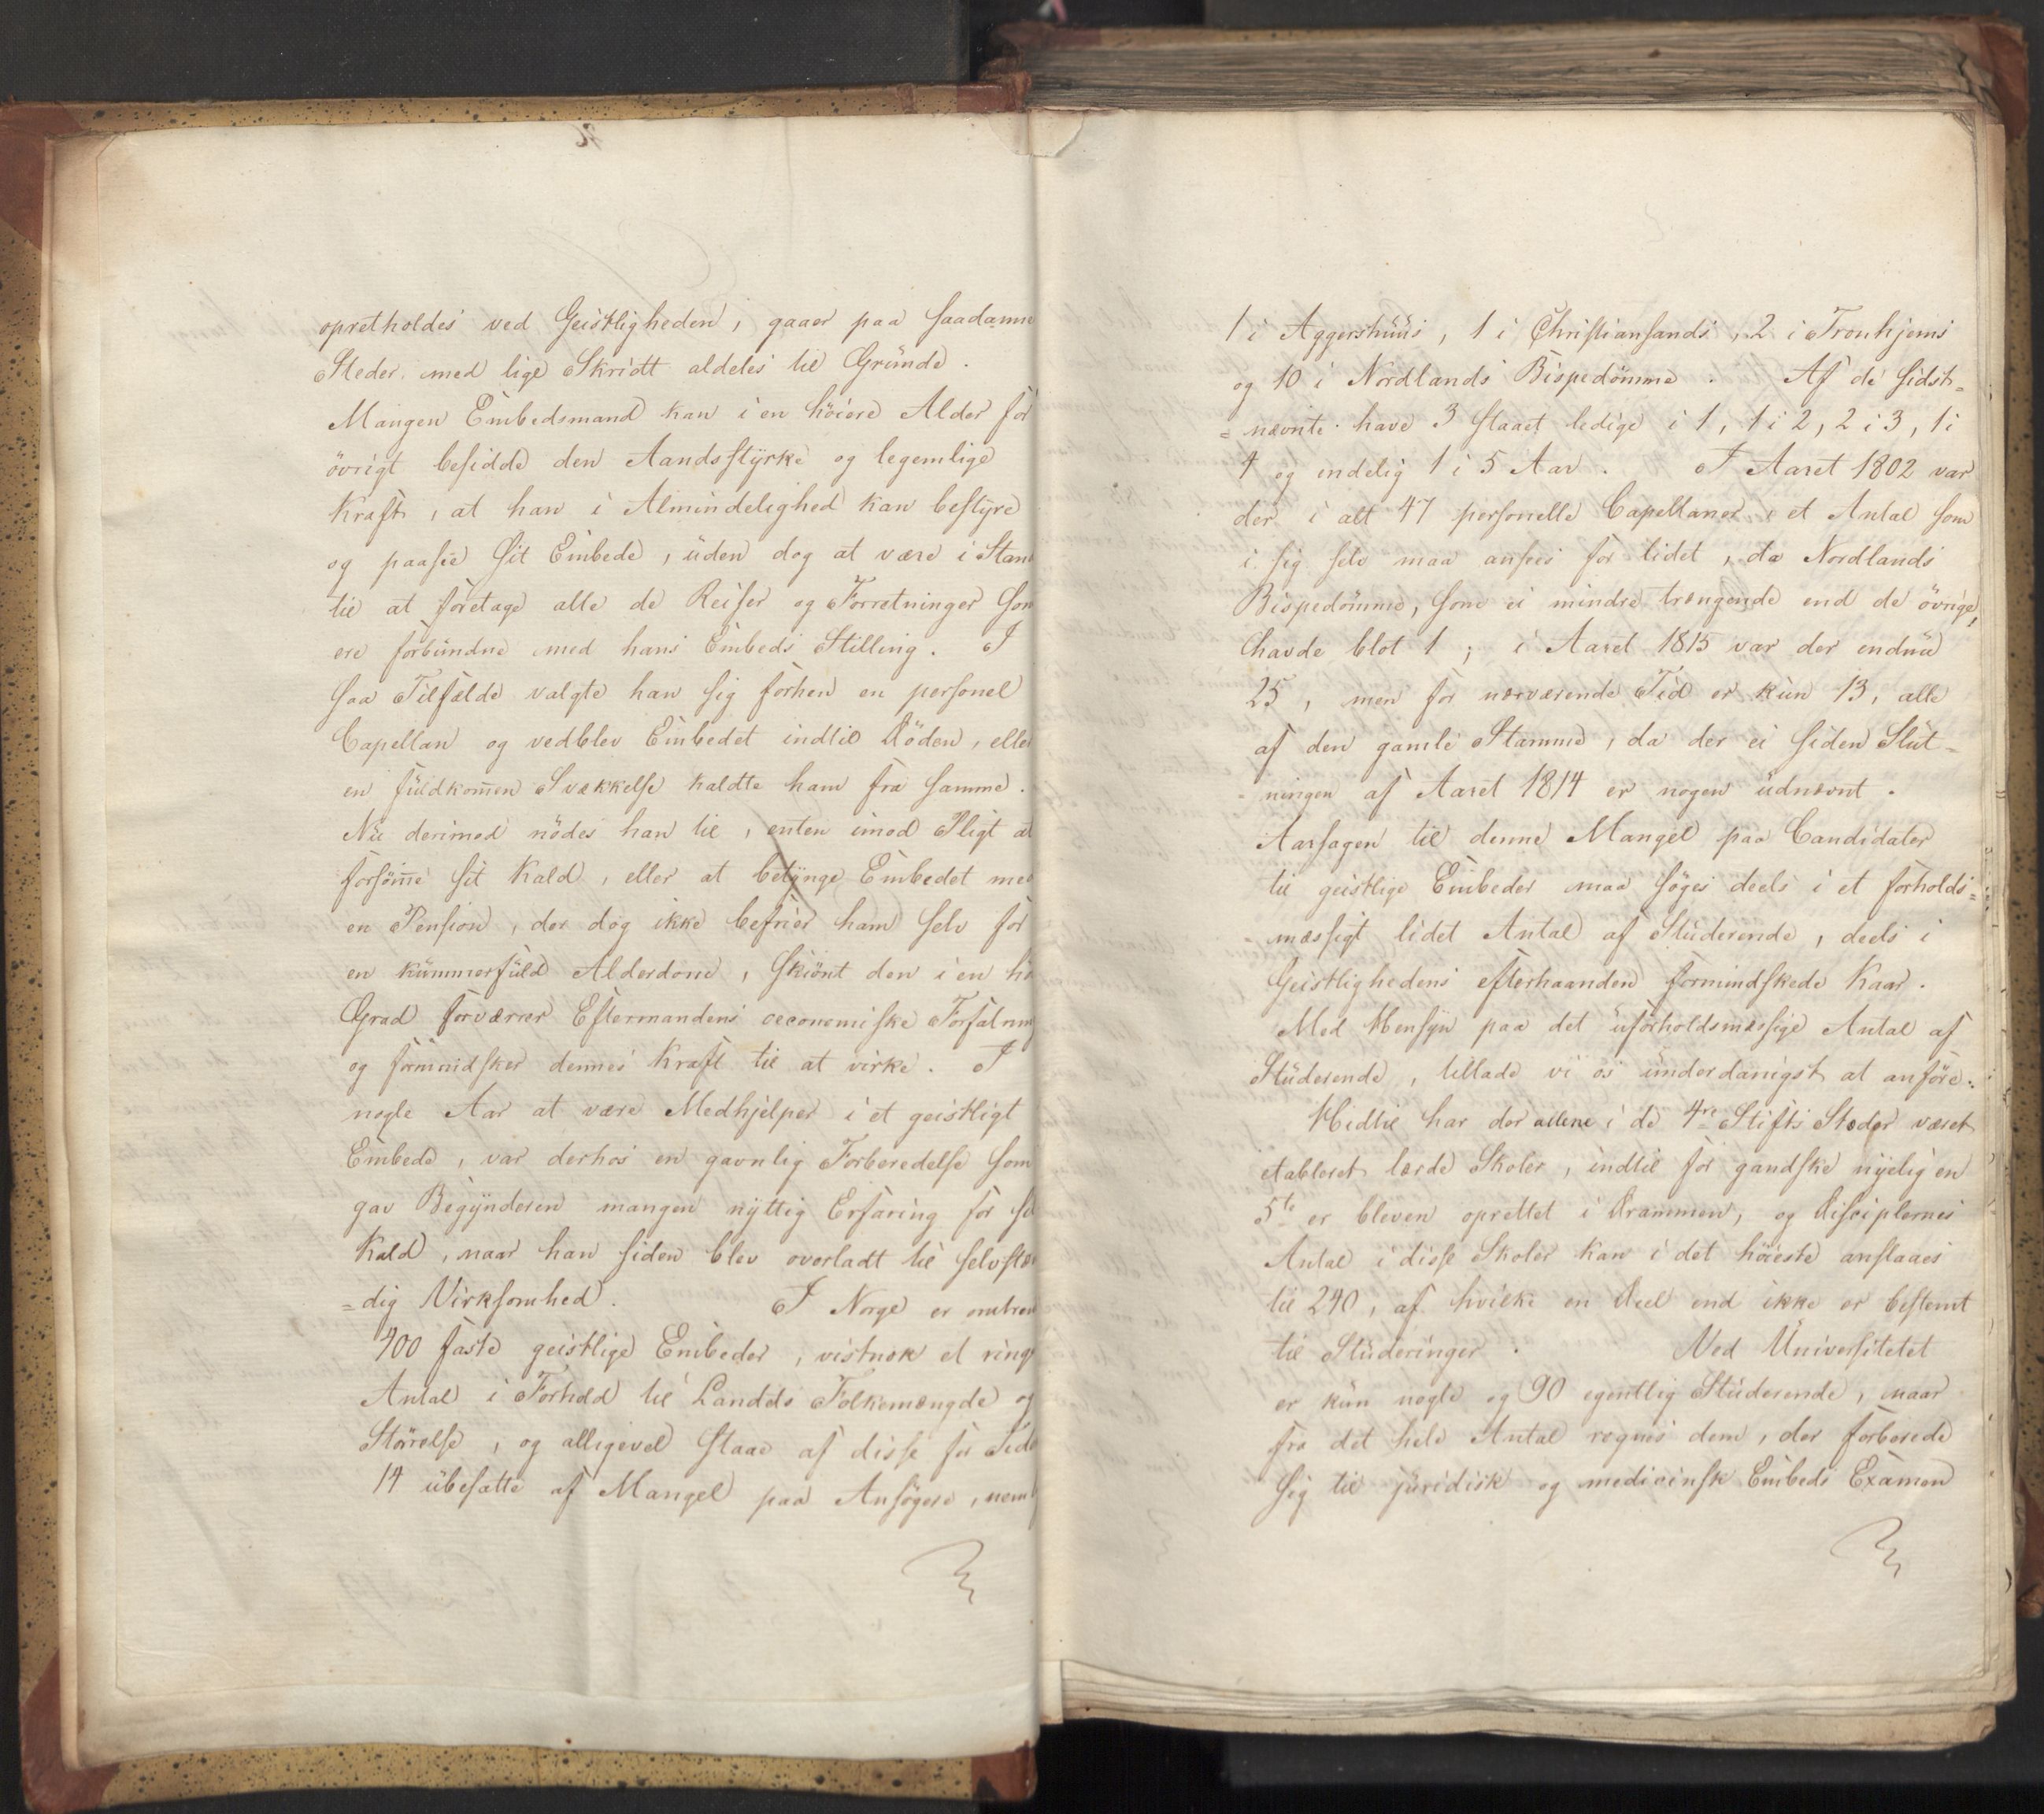 opretholdes ved Geistligheden, gaaer paa saadanne
Steder med lige Skridt aldeles til Grunde.
Mangen Embedsmand kan i en höiere Alder for
övrigt besidde den Aandsstyrke og legemlige
Kraft, at han i Almindelighed kan bestyre
og paasee sit Embede, uden dog at være i Stand
til at foretage alle de Reiser og Forretninger som
ere forbundne med hans Embeds Stilling. I
saa Tilfælde valgte han sig forhen en personel
Capellan og vedblev Embedet indtil Döden, eller
en fuldkom̄en Svækkelse kaldte ham fra samme.
Nu derimod nödes han til, enten imod Pligt at
forsöm̄e sit Kald, eller at betynge Embedet med
en Pension, der dog ikke befrier ham selv for
en kummerfuld Alderdom, skiönt den i en hö
Grad forværrer Eftermandens oeconomiske Forfatning
og formindsker dennes Kraft til at virke. I
nogle Aar at være Medhjelper i et geistligt
Embede, var derhos en gavnlig Forberedelse som
gav Begynderen mangen nyttig Erfaring for sit
Kald, naar han siden blev overladt til selvstæn
=dig Virksomhed. I Norge er omtrent
400 faste geistlige Embeder, vistnok et ringe
Antal i Forhold til Landets Folkemængde og
Störrelse, og alligevel staae af disse for Tiden
14 ubesatte af Mangel paa Ansögere, nemlig
1 i Aggershuus, 1 i Christiansands, 2 i Tronhjems
og 10 i Nordlands Bispedömme. Af de sidst=
=nævnte have 3 staaet ledige i 1, 1 i 2, 2 i 3, 1 i
4 og endelig 1 i 5 Aar. I Aaret 1802 var
der i alt 47 personelle Capellaner i et Antal som
i sig selv maa ansees for lidet, da Nordlands
Bispedömme, som ei mindre trængende end de övrige,
havde blot 1; i Aaret 1815 var der endnu
25, men for nærværende Tid er kun 13, alle
af den gamle Stamme, da der ei siden Slut=
=ningen af Aaret 1814 er nogen udnævnt.
Aarsagen til denne Mangel paa Candidater
til geistlige Embeder maa söges deels i et forholds=
=mæssigt lidet Antal af Studerende, deels i
Geistlighedens efterhaanden formindskede Kaar.
Med Hensyn paa det uforholdsmæssige Antal af
Studerende, tillade vi os underdanigst at anföre:
Hidtil har der allene i de 4re Stifts Stæder været
etableret lærde Skoler, indtil for gandske nyelig en
5te er bleven oprettet i Drammen, og Disciplernes
Antal i disse Skoler kan i det höieste anslaaes
til 240, af hvilke en Deel end ikke er bestemt
til Studeringer. Ved Universitetet
er kun nogle og 90 egentlig Studerende, naar
fra det hele Antal regnes dem, der forberede
sig til juridisk og medicinsk Embeds Examen